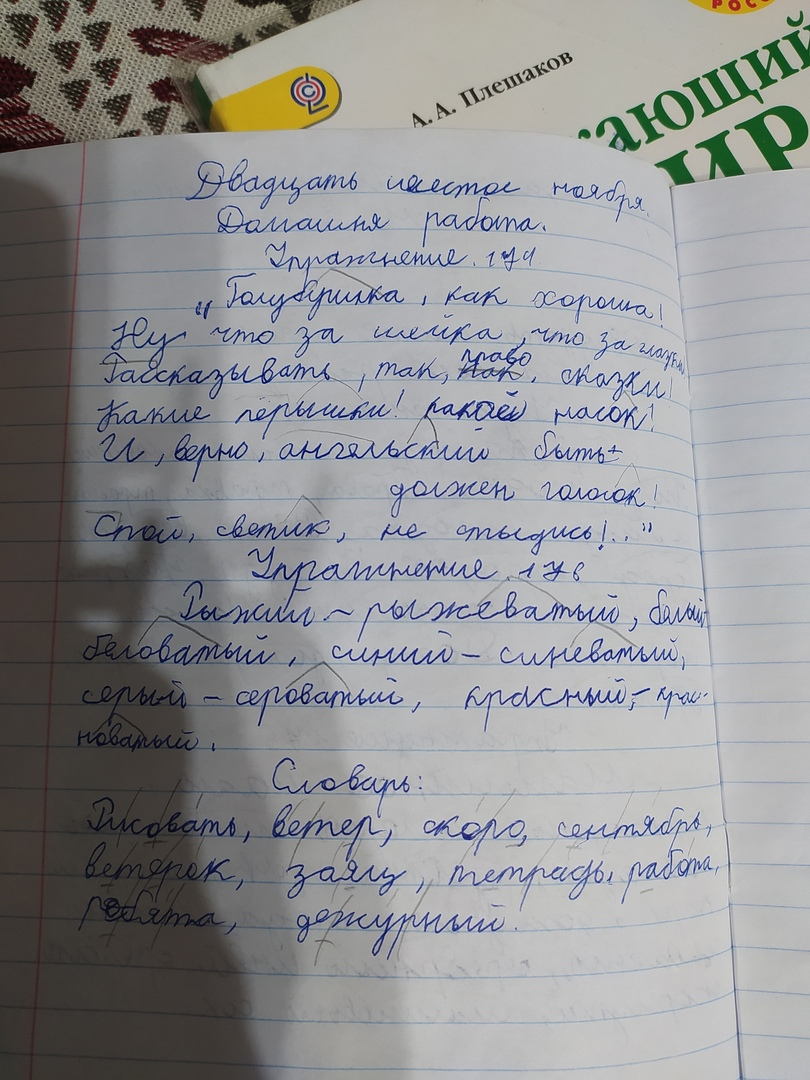 РОСС
А. А. Плешаков
кающий
ир
Двадцать шестое ноября.
Домашня работа.
Упражнение. 174
"Голубушка, как хороша!
Ну что за шейка, что за глазки
Рассказывать, так, право, сказки!
Какие пёрышки! какой насок!
И, верно, ангельский быть
должен голосок!
Спой, светик, не стыдись!.."
Упражнение. 176
Рыжий - рыжеватый, белый
беловатый, синий - синеватый,
серый - сероватый, красный - крас-
новатый.
Словарь:
Рисовать, ветер, скоро, сентябрь,
ветерок, заяц, тетрадь, работа,
ребята, дежурный.